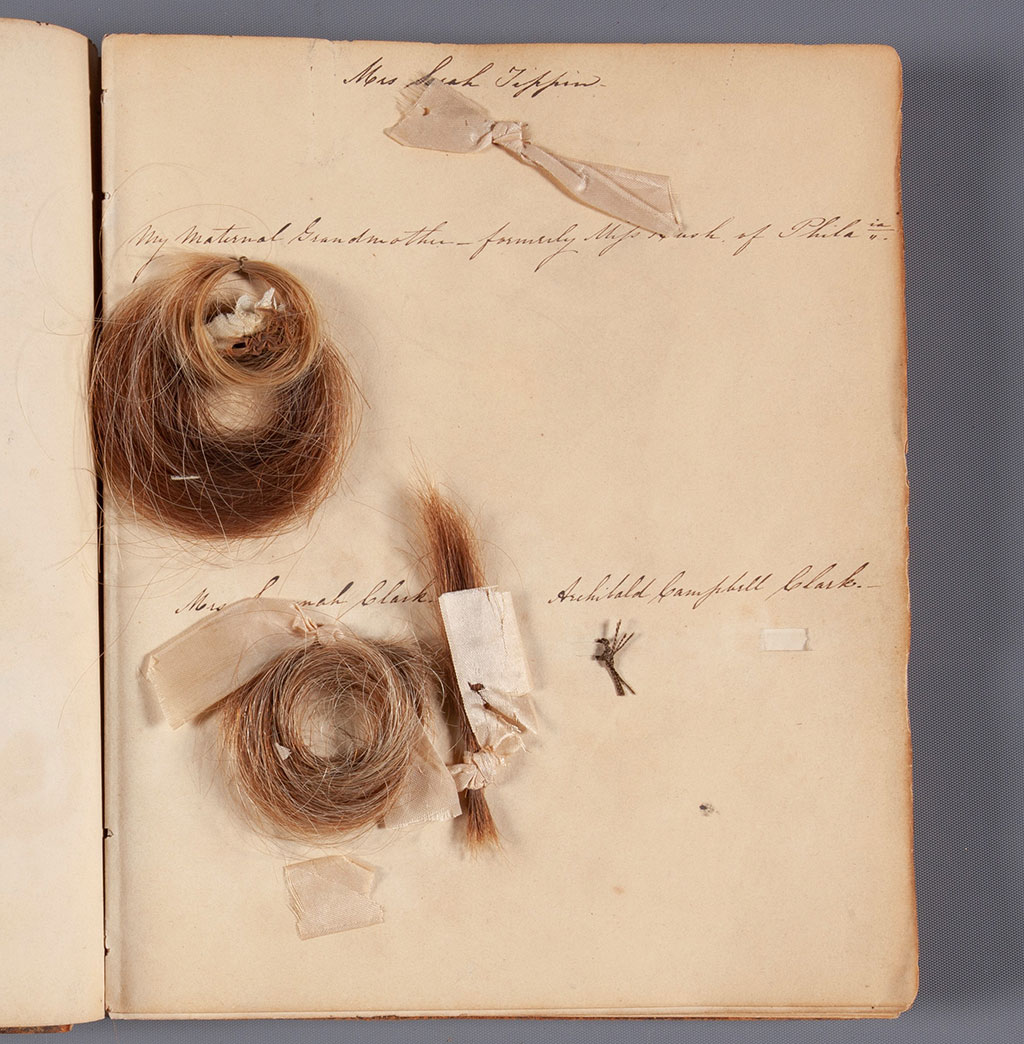 Mrs Tippin.
My Maternal Grandmother – formerly Miss of Phila ia/".
Mrs Clark.
Archibald Campbell Clark. –